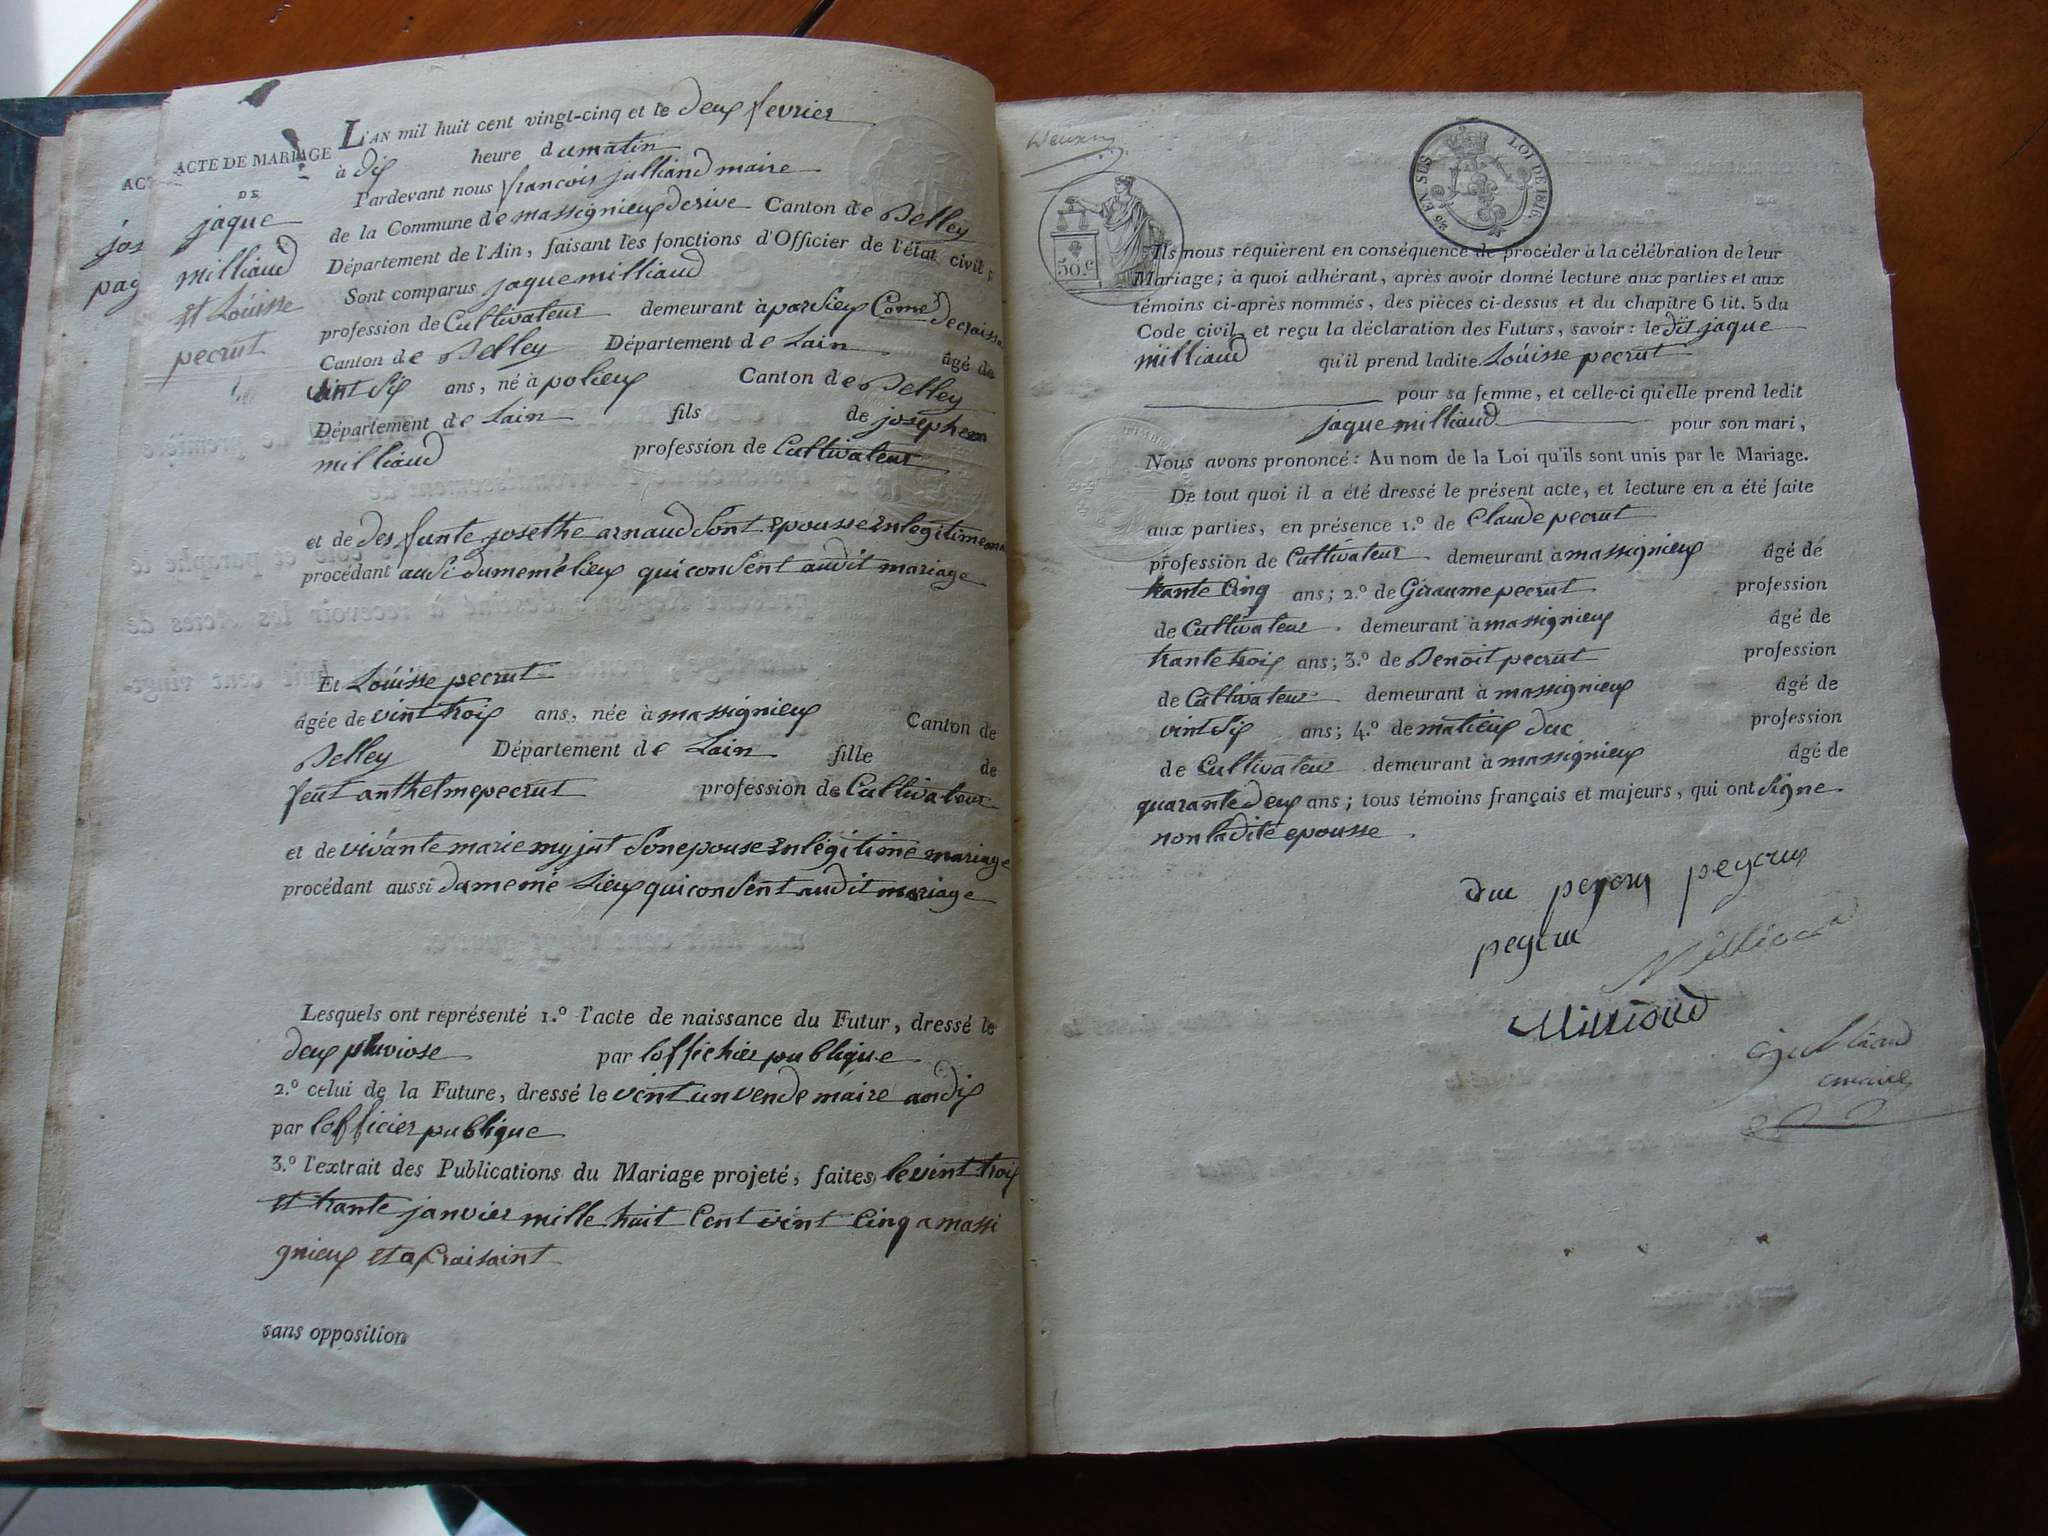 ACTE DE MARIAGE
DE
jaque
milliaud
et Loüisse
pecrut
ACT
jos
pag
L'AN mil huit cent vingt-cinq et le deux fevrier
à dix heure du matin
Pardevant nous francois julliand maire
de la Commune de massignieux de rive Canton de Belley
Département de l'Ain, faisant les fonctions d'Officier de l'état civil ;
Sont comparus jaque milliaud
profession de Cultivateur demeurant à parsieu Come de
Canton de Belley Département de Lain âgé de
vint six ans, né à polieux Canton de Belley
Département de Lain fils de joseph
milliaud profession de Cultivateur
et de des funte josethe arnaud sont epousse en legitime
procédant ausi du meme lieux qui consent audit mariage
Et Loüisse pecrut
âgée de vint trois ans, née à massignieux Canton de
Belley Département de Lain fille de
feut anthelme pecrut profession de Cultivateur
et de vivante marie myjut son epouse en légitime mariage
procédant aussi du memé Lieux qui consent audit mariage
Lesquels ont représenté 1.º l'acte de naissance du Futur, dressé le
deux pluviose par loffichier publique
2.º celui de la Future, dressé le vint un vende maire an dix
par lofficier publique
3.º l'extrait des Publications du Mariage projeté, faites le vint trois
et trante janvier mille huit Cent vint Cinq a massi
gnieux et a Craisaint
sans opposition
LOI DE 1816.
EN SUS
50.c
Ils nous requièrent en conséquence de procéder à la célébration de leur
Mariage ; à quoi adhérant, après avoir donné lecture aux parties et aux
témoins ci-après nommés, des pièces ci-dessus et du chapitre 6 tit. 5 du
Code civil, et reçu la déclaration des Futurs, savoir : le dit jaque
milliaud qu'il prend ladite Loüisse pecrut
pour sa femme, et celle-ci qu'elle prend ledit
jaque milliaud pour son mari,
Nous avons prononcé : Au nom de la Loi qu'ils sont unis par le Mariage.
De tout quoi il a été dressé le présent acte, et lecture en a été faite
aux parties, en présence 1.º de Claude pecrut
profession de Cultivateur demeurant à massignieux âgé de
trante Cinq ans ; 2.º de Giraume pecrut profession
de Cultivateur demeurant à massignieux âgé de
trante trois ans ; 3.º de Benoit pecrut profession
de Cultivateur demeurant à massignieux âgé de
vint six ans ; 4.º de matieux duc profession
de Cultivateur demeurant à massignieux âgé de
quarante deux ans ; tous témoins français et majeurs, qui ont signe
non ladite epousse
duc peycru peycru
peycru
Millioud
Millioud
julliand
maire